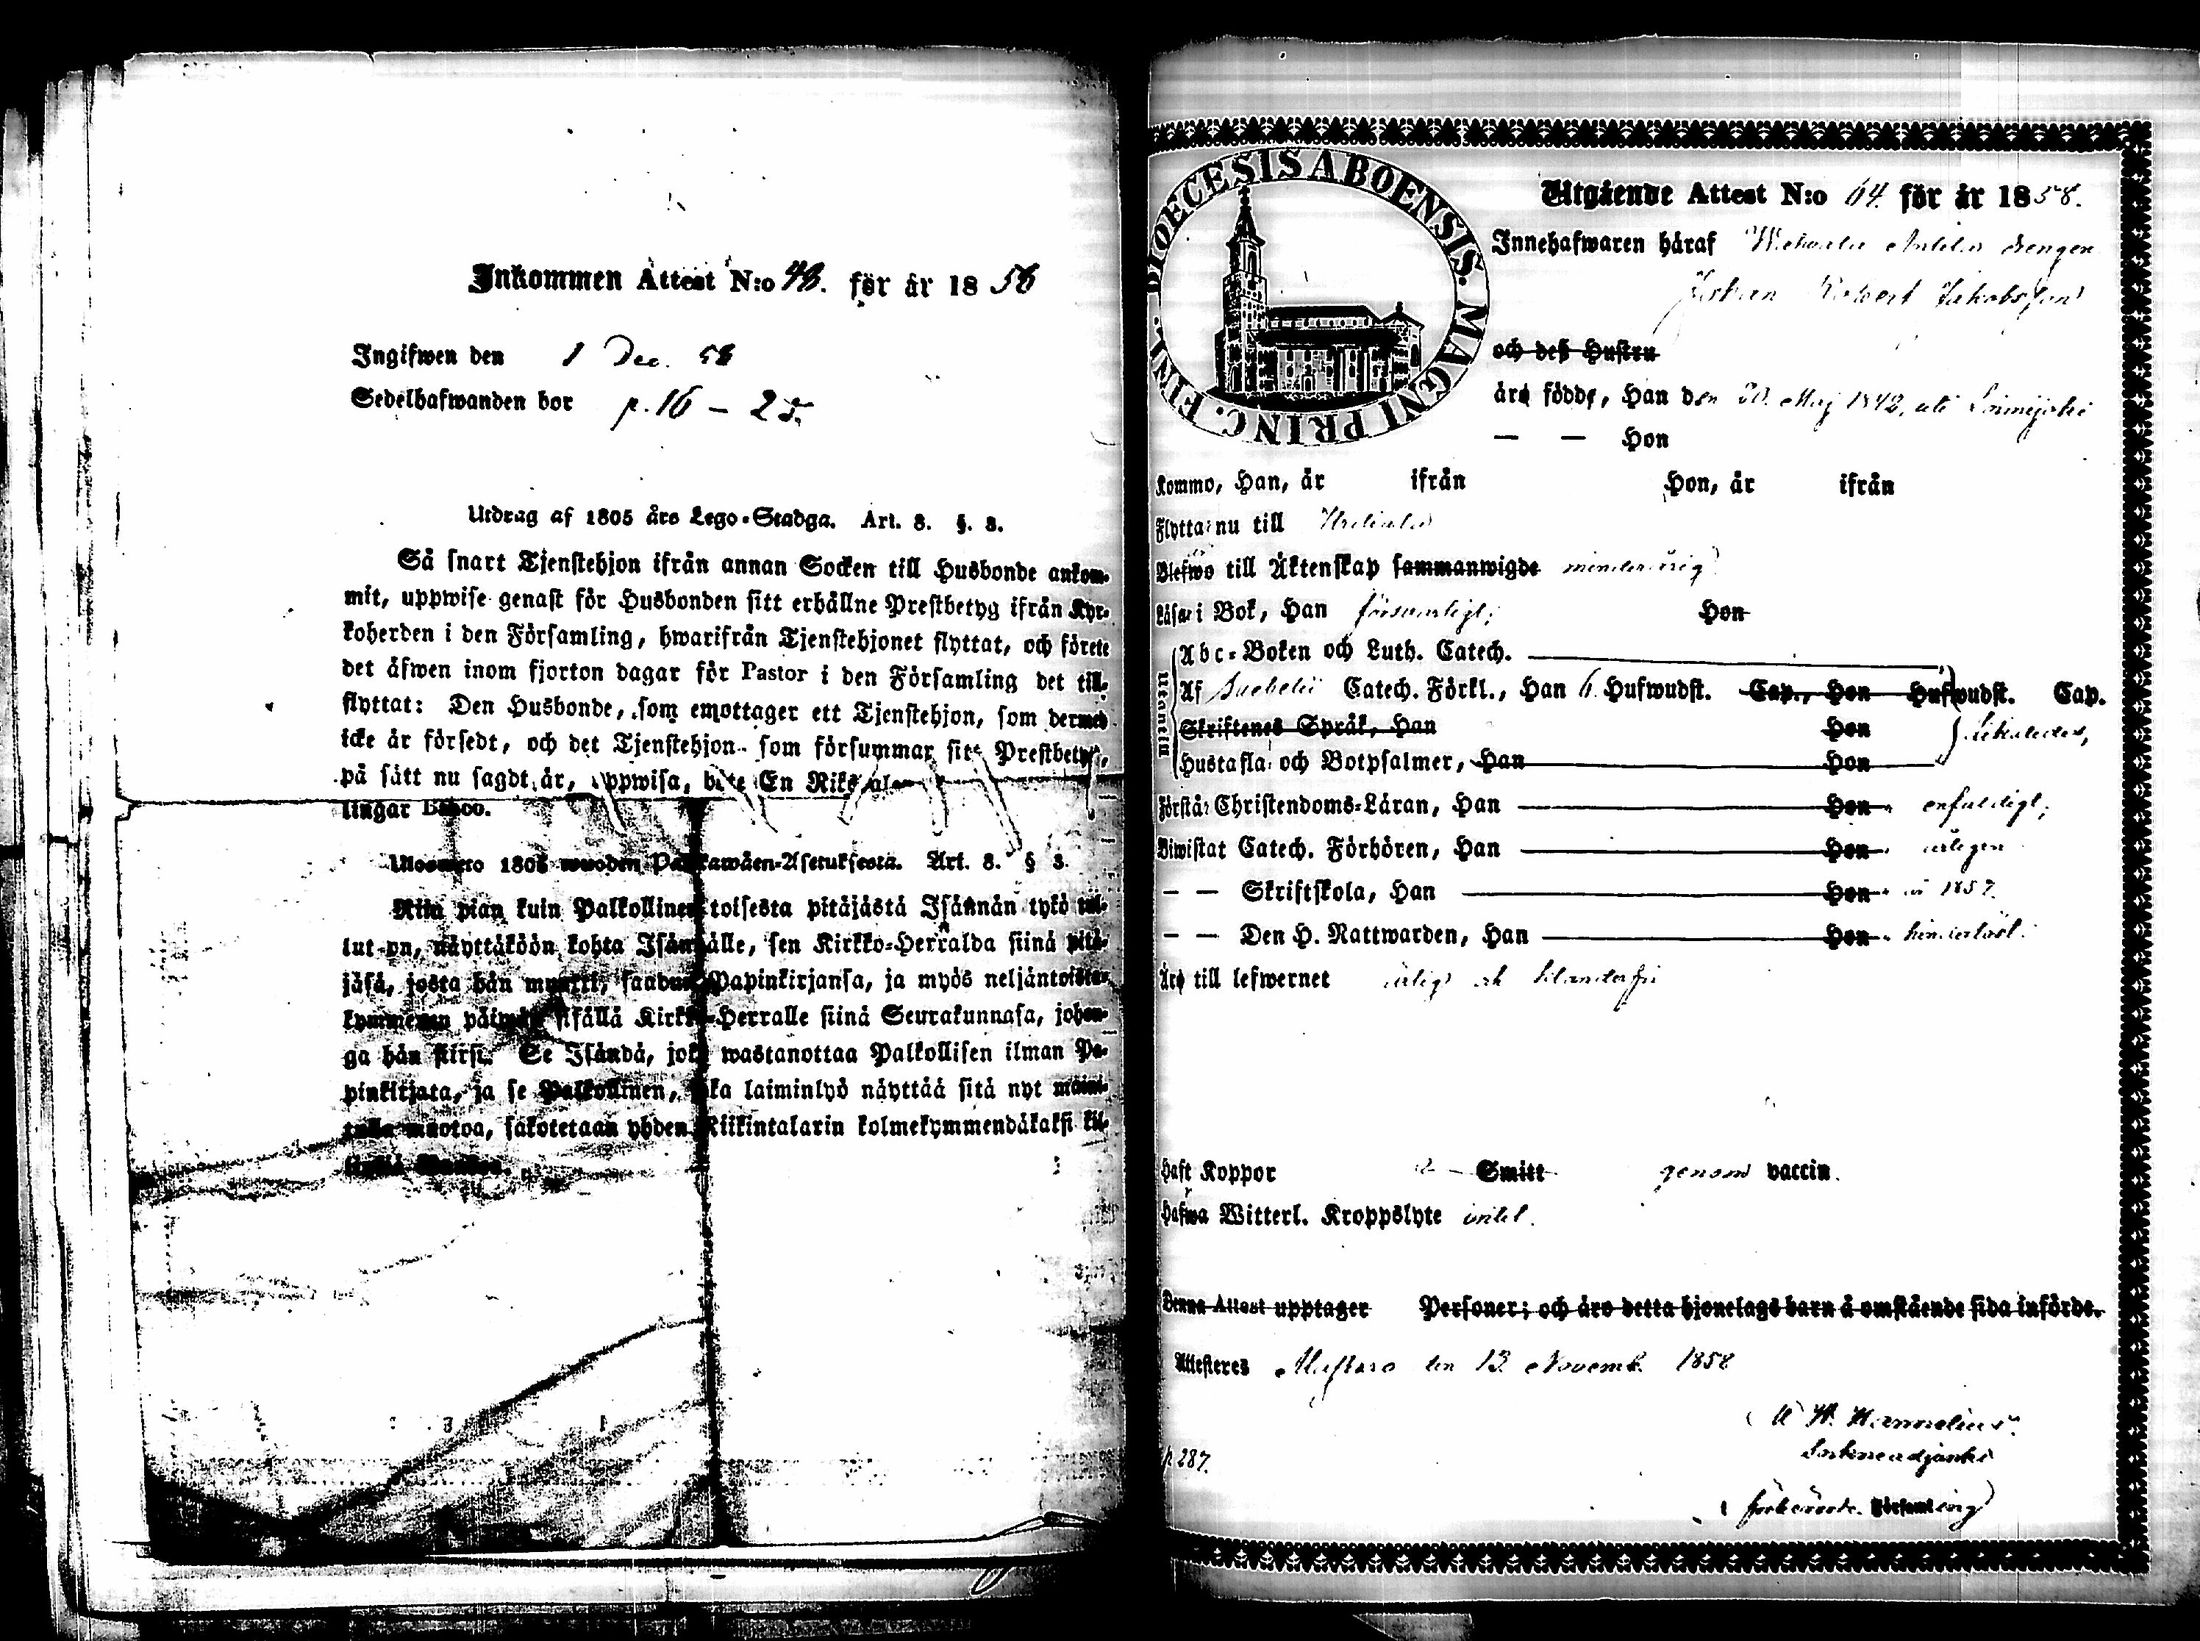 Inkommen Attest N:o 48. för år 1858
Ingifwen den 1 Dec. 58
Sedelhafwanden bor p. 16 – 25.
Utdrag af 1805 års Lego-Stadga. Art. 8. §. 3.
Så snart Tjenstehjon ifrån annan Socken till Husbonde ankom-
mit, uppwise genast för Husbonden sitt erhållne Prestbetyg ifrån Kyr-
koherden i den Församling, hwarifrån Tjenstehjonet flyttat, och förete
det äfwen inom fjorton dagar för Pastor i den Församling det till-
flyttat: Den Husbonde, som emottager ett Tjenstehjon, som dermed
icke är försedt, och det Tjenstehjon som försummar sitt Prestbetyg,
på sätt nu sagdt är, uppwisa, böte En Riks
lingar Banco.
1805 wuoden Palkawäen-Asetuksesta. Art. 8. § 3.
Niin pian kuin Palkollinen toisesta pitäjästä Isännän tykö tul-
lut on, näyttäköön kohta Isännälle, sen Kirkko-Herralda siinä pitä-
jäsä, josta hän muutti, saadun Papinkirjansa, ja myös neljäntoista-
kymmenen päiwän sisällä Kirkko-Herralle siinä Seurakunnasa, johon-
ga hän siirsi. Se Isändä, joka wastanottaa Palkollisen ilman Pa-
pinkirjata, ja se Palkollinen, joka laiminlyö näyttää sitä nyt maini-
tulla muotoa, sakotetaan yhden Riikintalarin kolmekymmendäkaksi kil-
DIOECESIS ABOENSIS. MAGNI PRINC. FINL.
Utgående Attest N:o 64. för år 1858.
Innehafwaren häraf drengen
Johan Robert Jakobsson
och deß Hustru
äro födde, Han den 20. Maj 1842, uti Loimijoki
— — Hon
Kommo, Han, år ifrån Hon, år ifrån
Flytta nu till
Blefwo till Äktenskap sammanwigde minderårig
Läsa i Bok, Han försvarligt; Hon
Utantill
Abc-Boken och Luth. Catech.
Af Svebelii Catech. Förkl., Han 6 Hufwudst. Cap., Hon Hufwudst. Cap.
Skriftenes Språk, Han Hon
Hustafla och Botpsalmer, Han Hon
Förstå Christendoms-Läran, Han Hon enfaldigt;
Biwistat Catech. Förhören, Han Hon årligen
— — Skriftskola, Han Hon 1857.
— — Den H. Nattwarden, Han Hon
Äro till lefwernet ärlig och
Haft Koppor Smitt genom vaccin.
Hafwa Witterl. Kroppslyte intet.
Denna Attest upptager Personer; och äro detta hjonelags barn å omstående sida införde.
Attesteres den 13 Novemb. 1858
Sockneadjunkt
p 287.
Församling